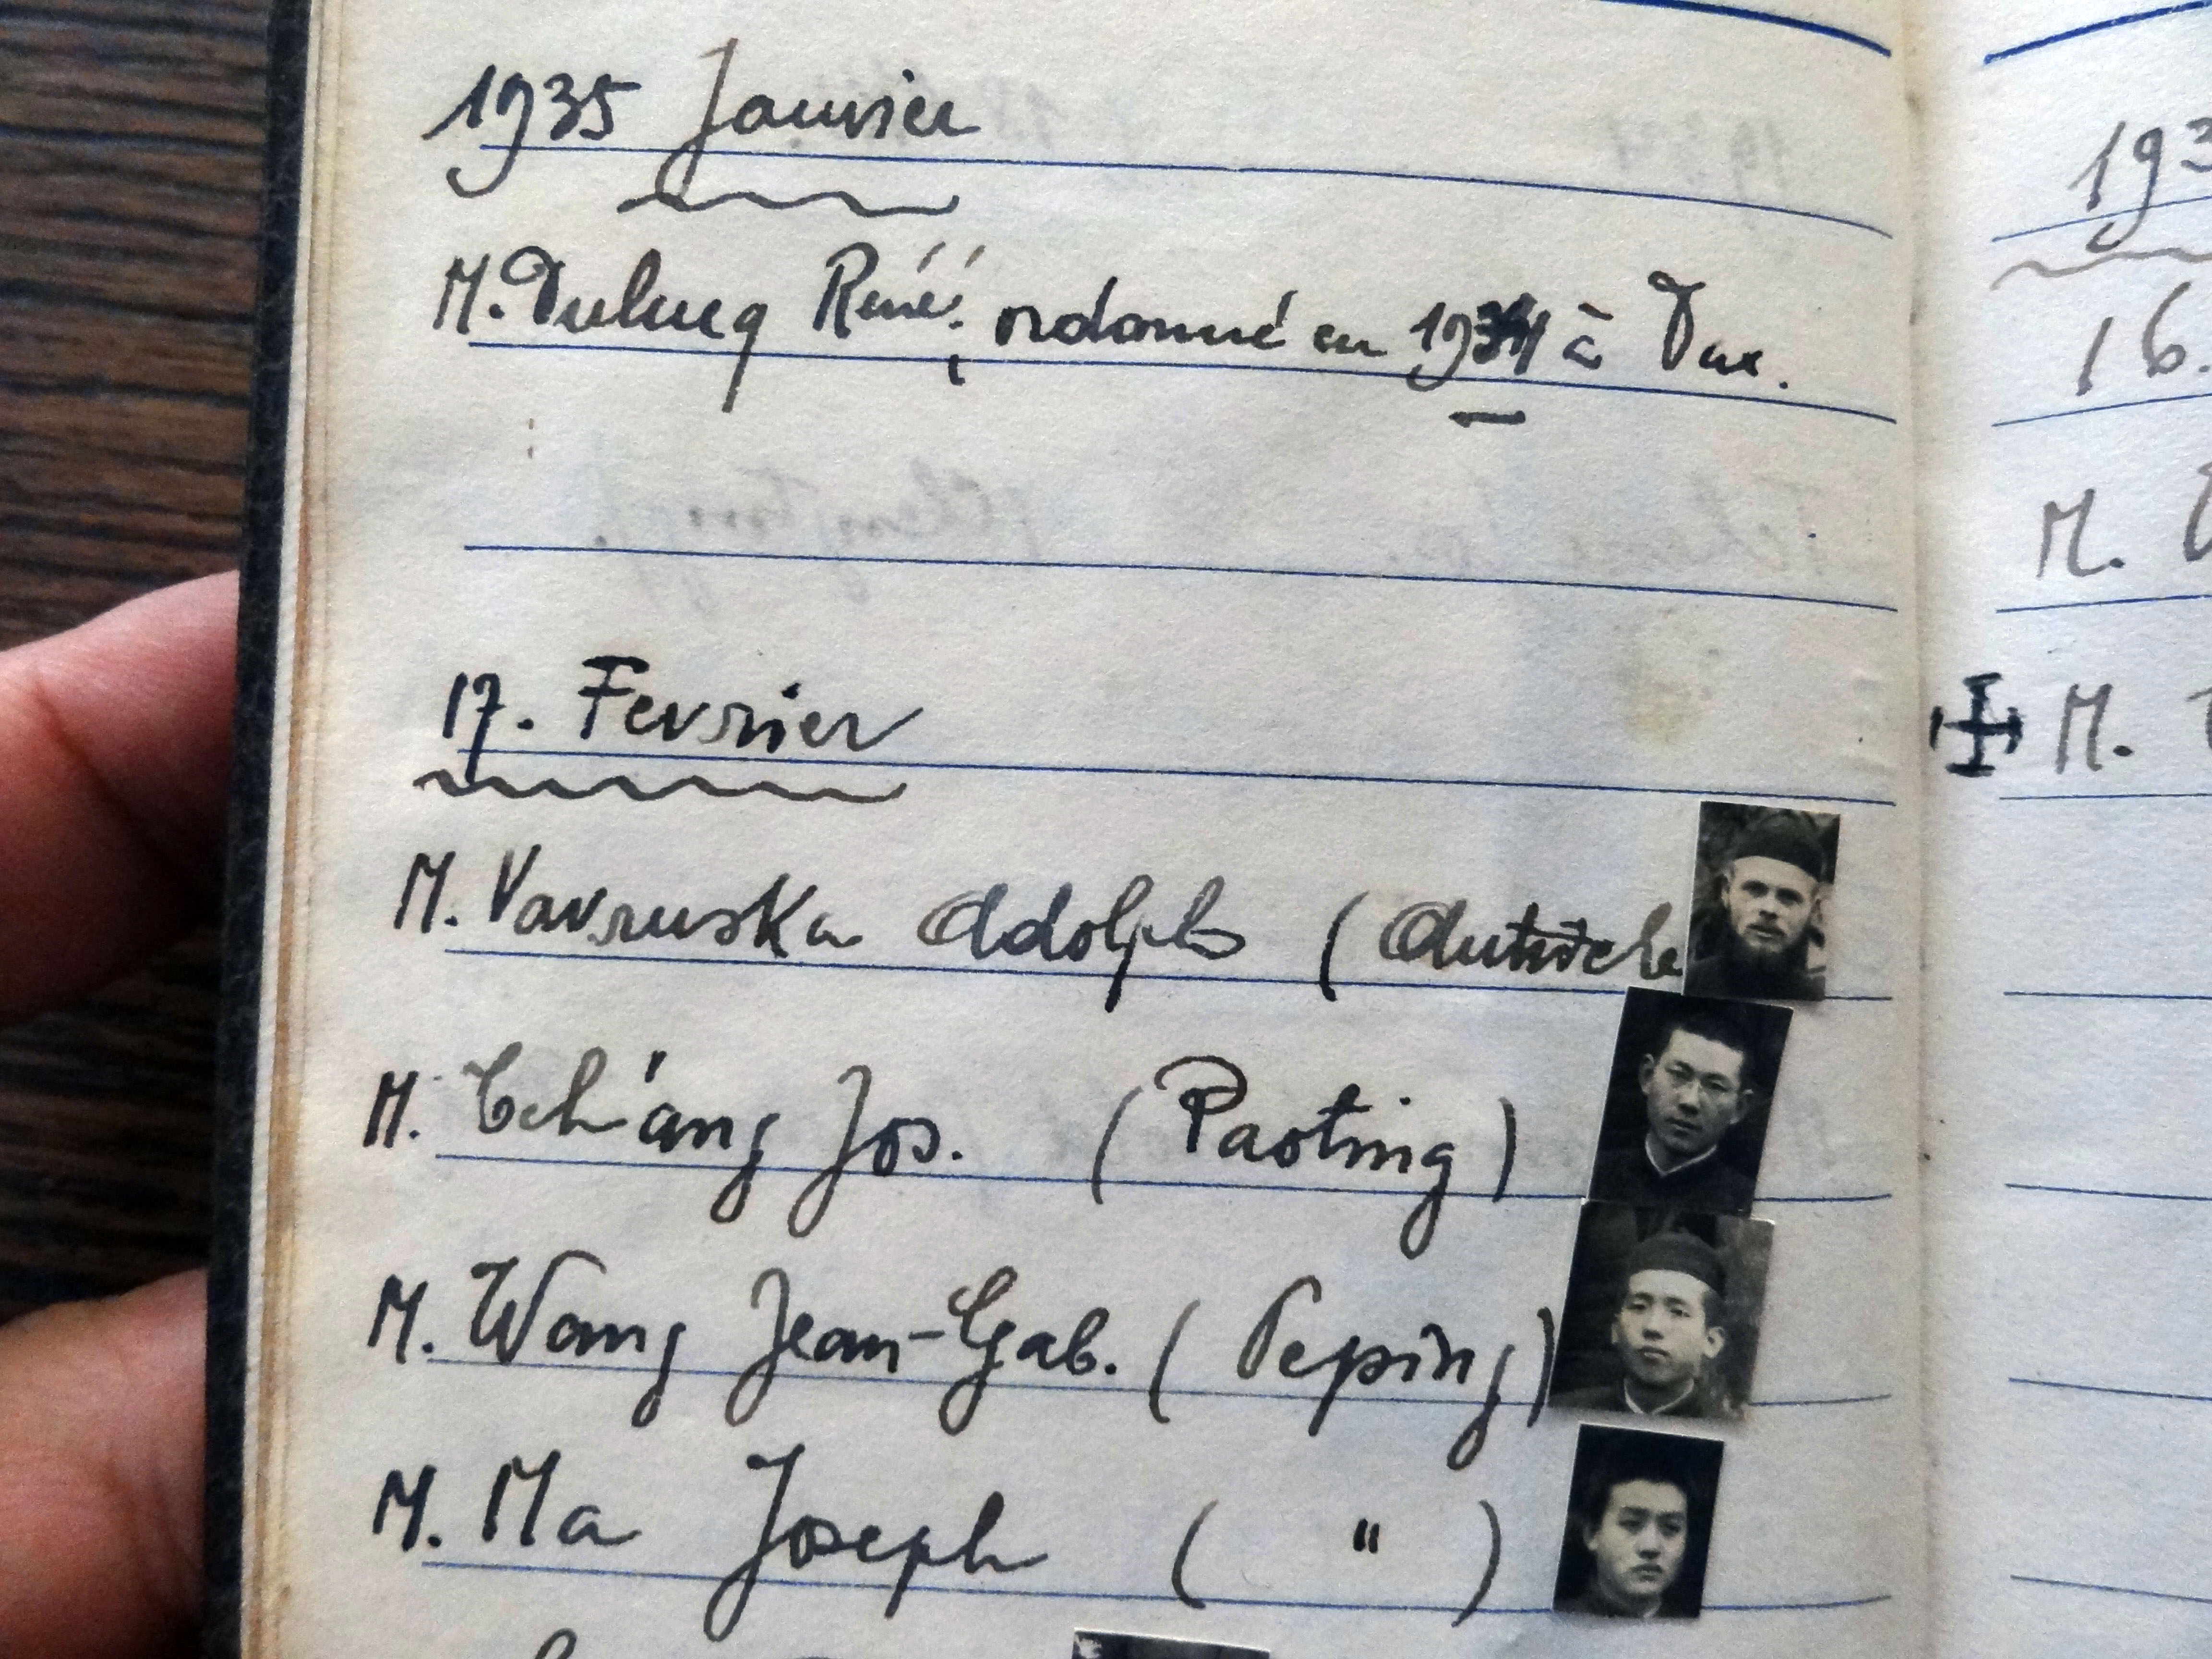 1935 Janvier
M. Dulucq René, ordonné en 1934 à Dax.
17. Fevrier
M. Vavruska Adolph (Autriche
M. Tch'ang Jos. (Paoting)
M. Wang Jean-Gab. (Peping)
M. Ma Joseph ( " )
193
16.
M.
M.